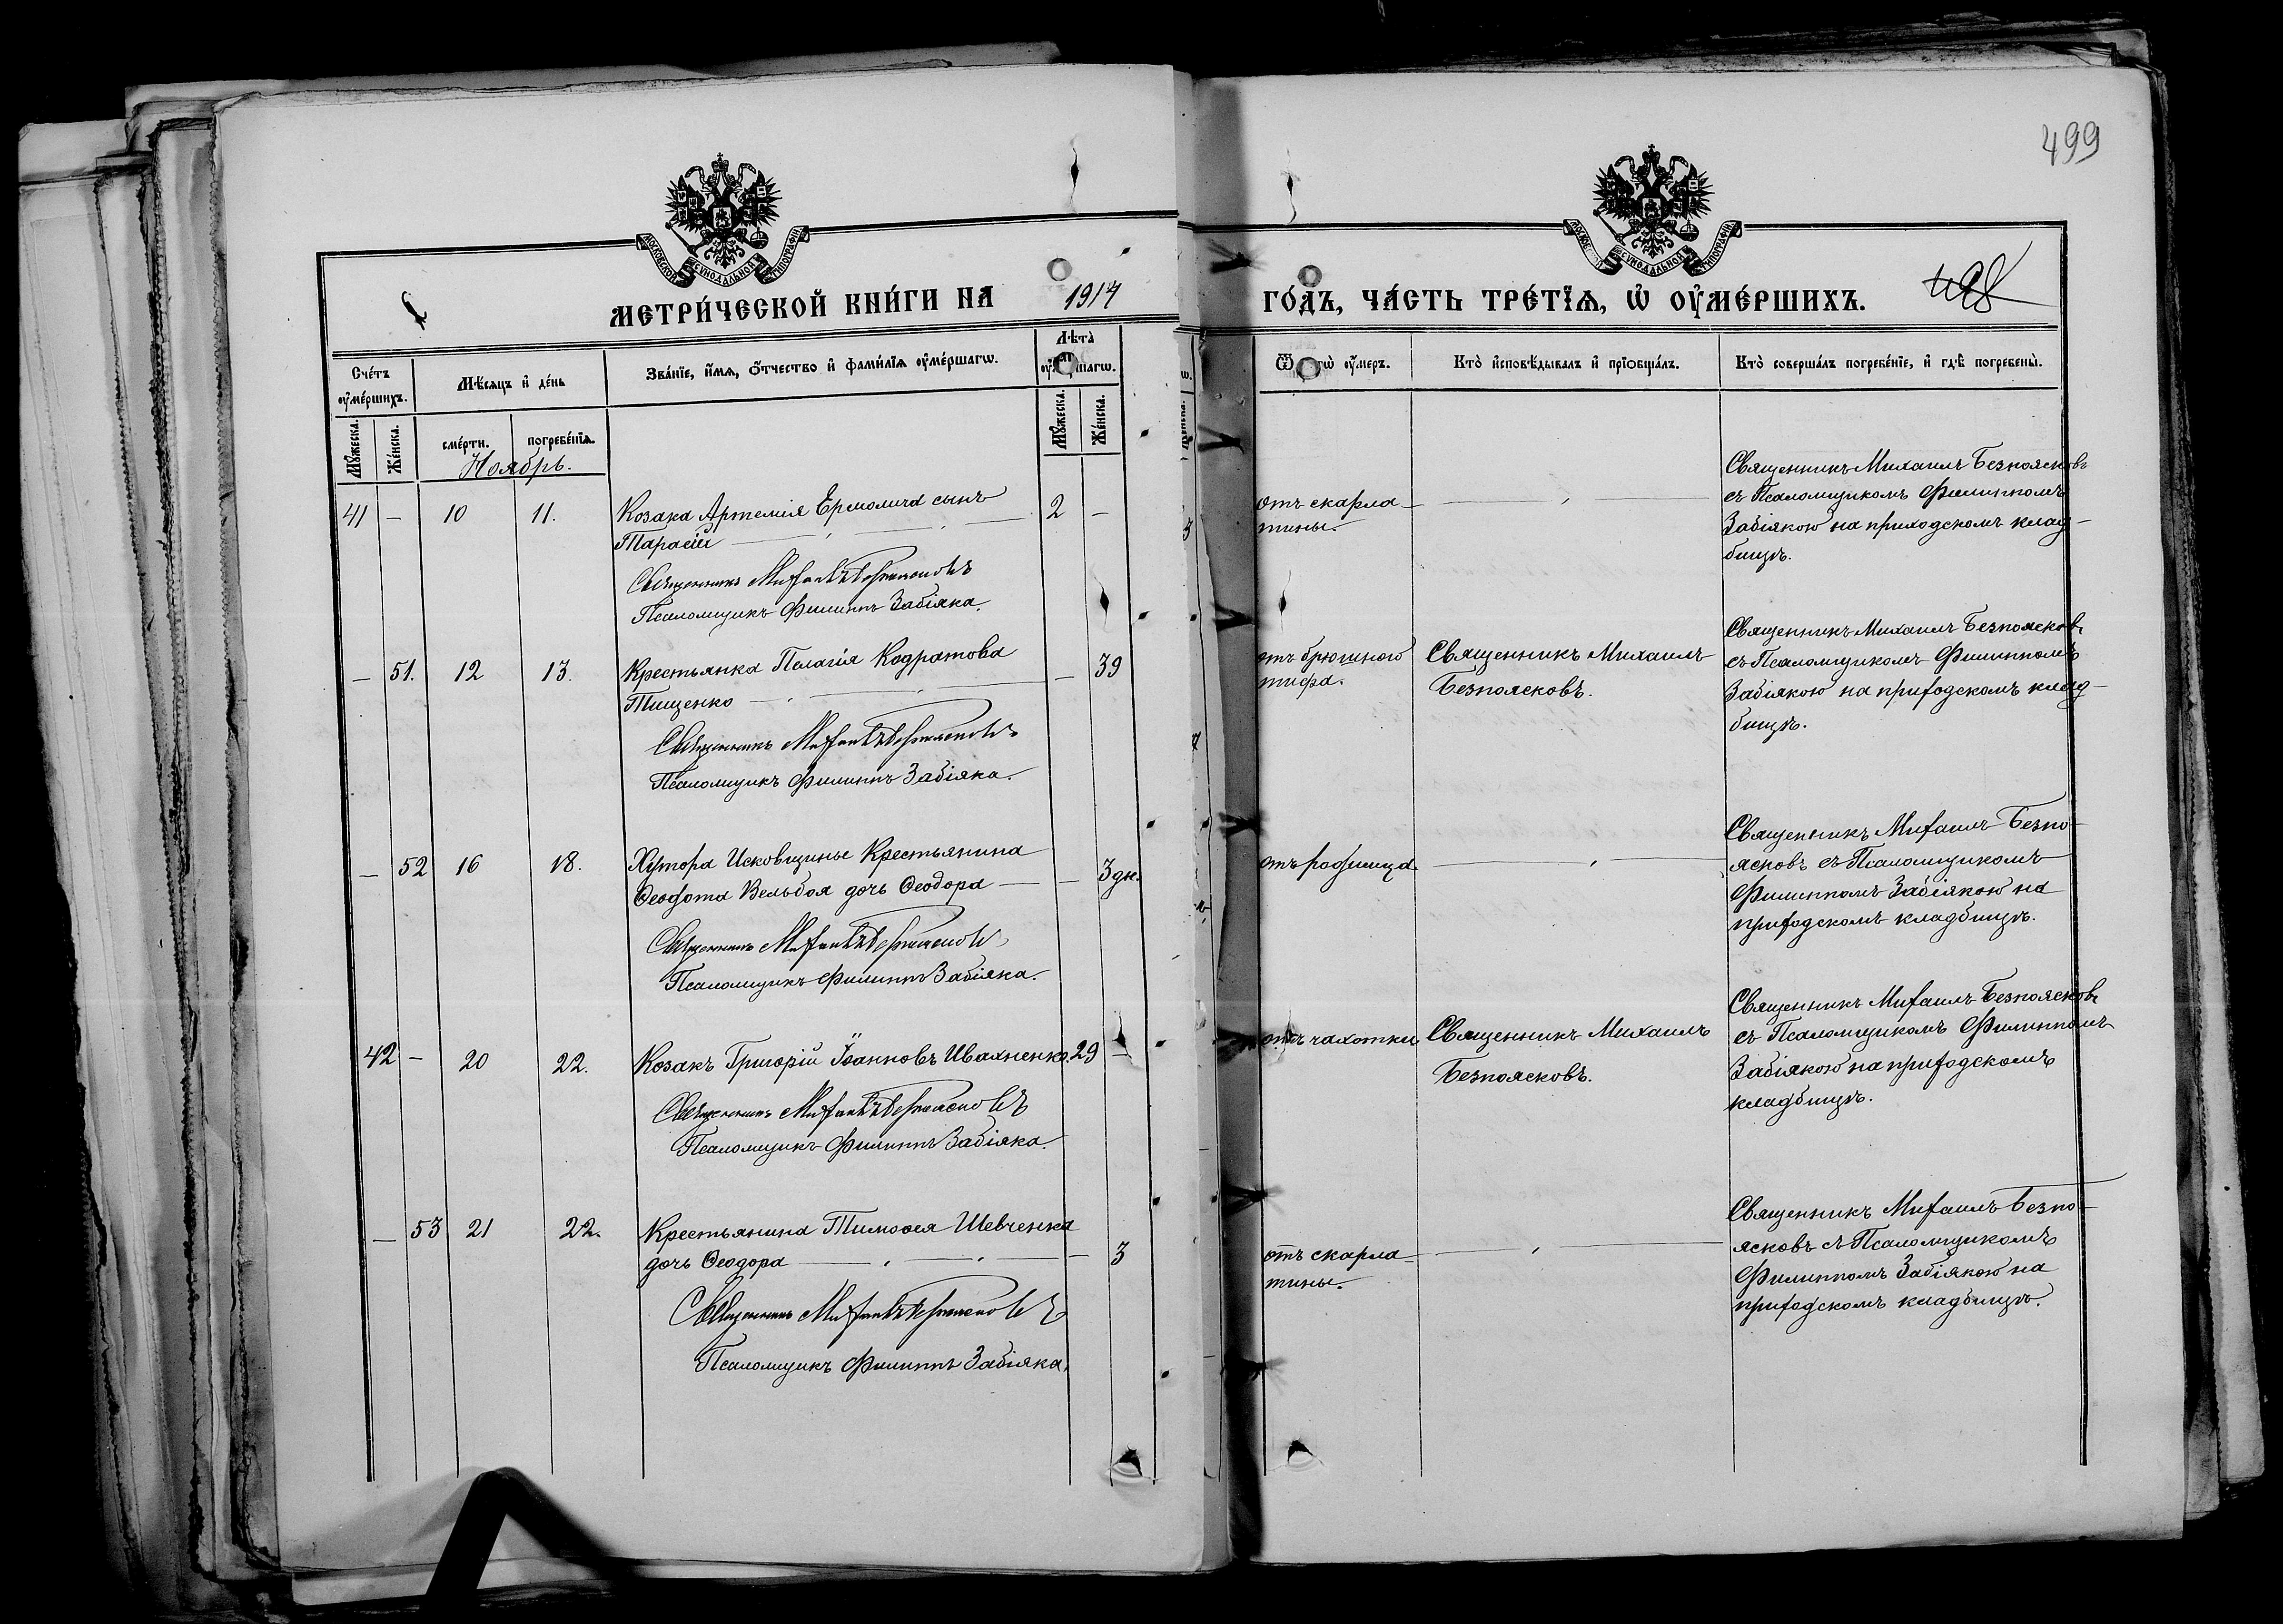 499
МОСКОВСКОЙ СѴНОДАЛЬНОЙ ТИПОГРАФІИ
МОСКОВ СѴНОДАЛЬНОЙ ТИПОГРАФІИ
МЕТРИ́ЧЕСКОЙ КНИ́ГИ НА 1914 ГО́ДЪ, ЧА́СТЬ ТРЕ́ТЇѦ, Ѽ ОУ҆МЕ́РШИХЪ. 498
Сче́тъ оу҆ме́ршихъ.
Мѣ́сяцъ и҆ де́нь
Зва́нїе, и҆́мѧ, ѻ҆́тчество и҆ фами́лїѧ оу҆ме́ршагѡ.
Лѣ́та̀ оу҆ме́ршагѡ.
Ѿ чегѡ̀ оу҆́меръ.
Кто̀ и҆сповѣ́дывалъ и҆ прїѻбща́лъ.
Кто̀ соверша́лъ погребе́нїе, и҆ гдѣ̀ погребены̀.
Мꙋ́жеска. Же́нска. сме́рти. погребе́нїѧ. Мꙋ́жеска. Же́нска.
Ноябрь.
41 — 10 11. Козака Артемія Ермолича сынъ 2 —
Тарасій
Священникъ Михаилъ Безпоясковъ
Псаломщикъ Филиппъ Забіяка.
отъ скарла-
тины.
Священникъ Михаилъ Безпоясковъ
съ Псаломщикомъ Филиппомъ
Забіякою на приходскомъ клад-
бищѣ.
— 51. 12 13. Крестьянка Пелагія Кодратова — 39
Тищенко
Священникъ Михаилъ Безпоясковъ
Псаломщикъ Филиппъ Забіяка.
отъ брюшного
тифа.
Священникъ Михаилъ
Безпоясковъ.
Священникъ Михаилъ Безпоясковъ
съ Псаломщикомъ Филиппомъ
Забіякою на приходскомъ клад-
бищѣ.
— 52 16 18. Хутора Исковщины Крестьянина
Ѳеодота Вельбоя дочь Ѳеодора — — 3 дн.
Священникъ Михаилъ Безпоясковъ
Псаломщикъ Филиппъ Забіяка.
отъ родимца
Священникъ Михаилъ Безпо-
ясковъ съ Псаломщикомъ
Филиппомъ Забіякою на
приходскомъ кладбищѣ.
42 — 20 22. Козакъ Григорій Іоанновъ Ивахненко. 29 —
Священникъ Михаилъ Безпоясковъ
Псаломщикъ Филиппъ Забіяка.
отъ чахотки
Священникъ Михаилъ
Безпоясковъ.
Священникъ Михаилъ Безпоясковъ
съ Псаломщикомъ Филиппомъ
Забіякою на приходскомъ
кладбищѣ.
— 53 21 22. Крестьянина Тимоѳея Шевченка
дочь Ѳеодора — 3
Священникъ Михаилъ Безпоясковъ
Псаломщикъ Филиппъ Забіяка.
отъ скарла-
тины.
Священникъ Михаилъ Безпо-
ясковъ съ Псаломщикомъ
Филиппомъ Забіякою на
приходскомъ кладбищѣ.